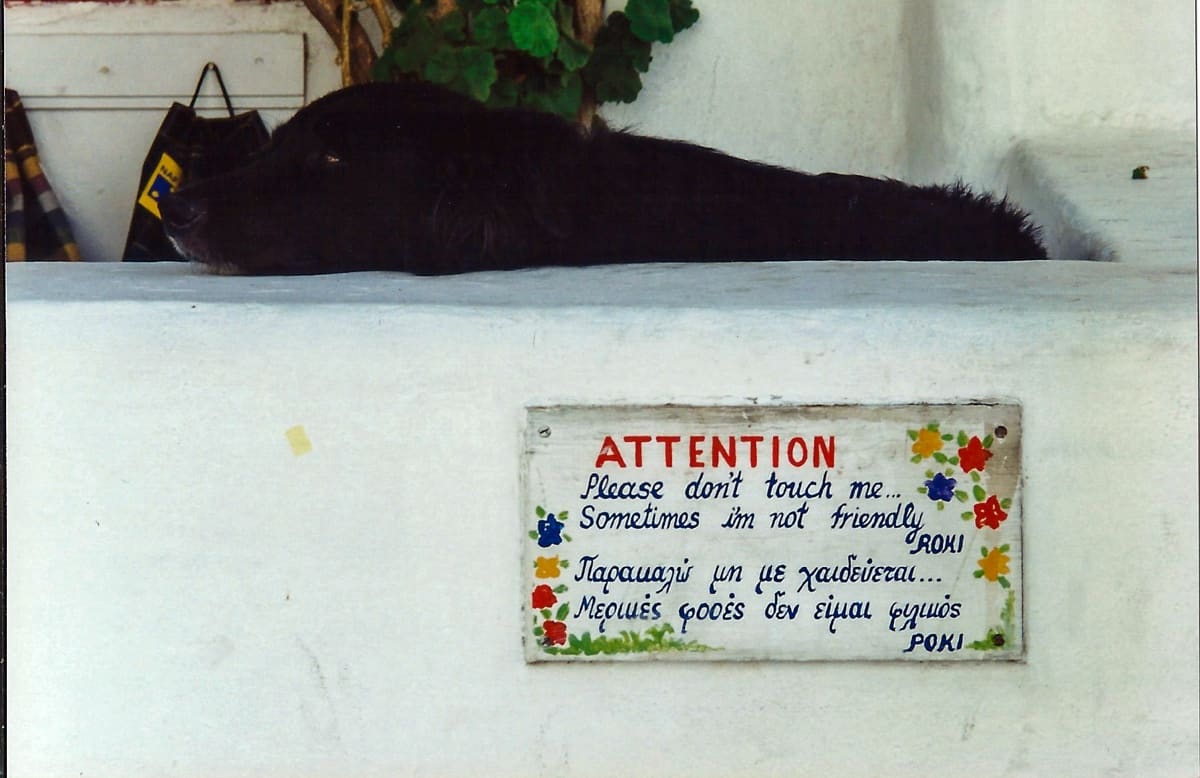 ATTENTION
Please don't touch me...
Sometimes i'm not friendly
ROKI
Παρακαλώ μη με χαιδεύεται...
Μερικές φορές δεν είμαι φιλικός
ΡΟΚΙ